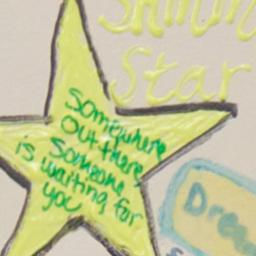 Star
somewhere
out there,
someone
is waiting for
you